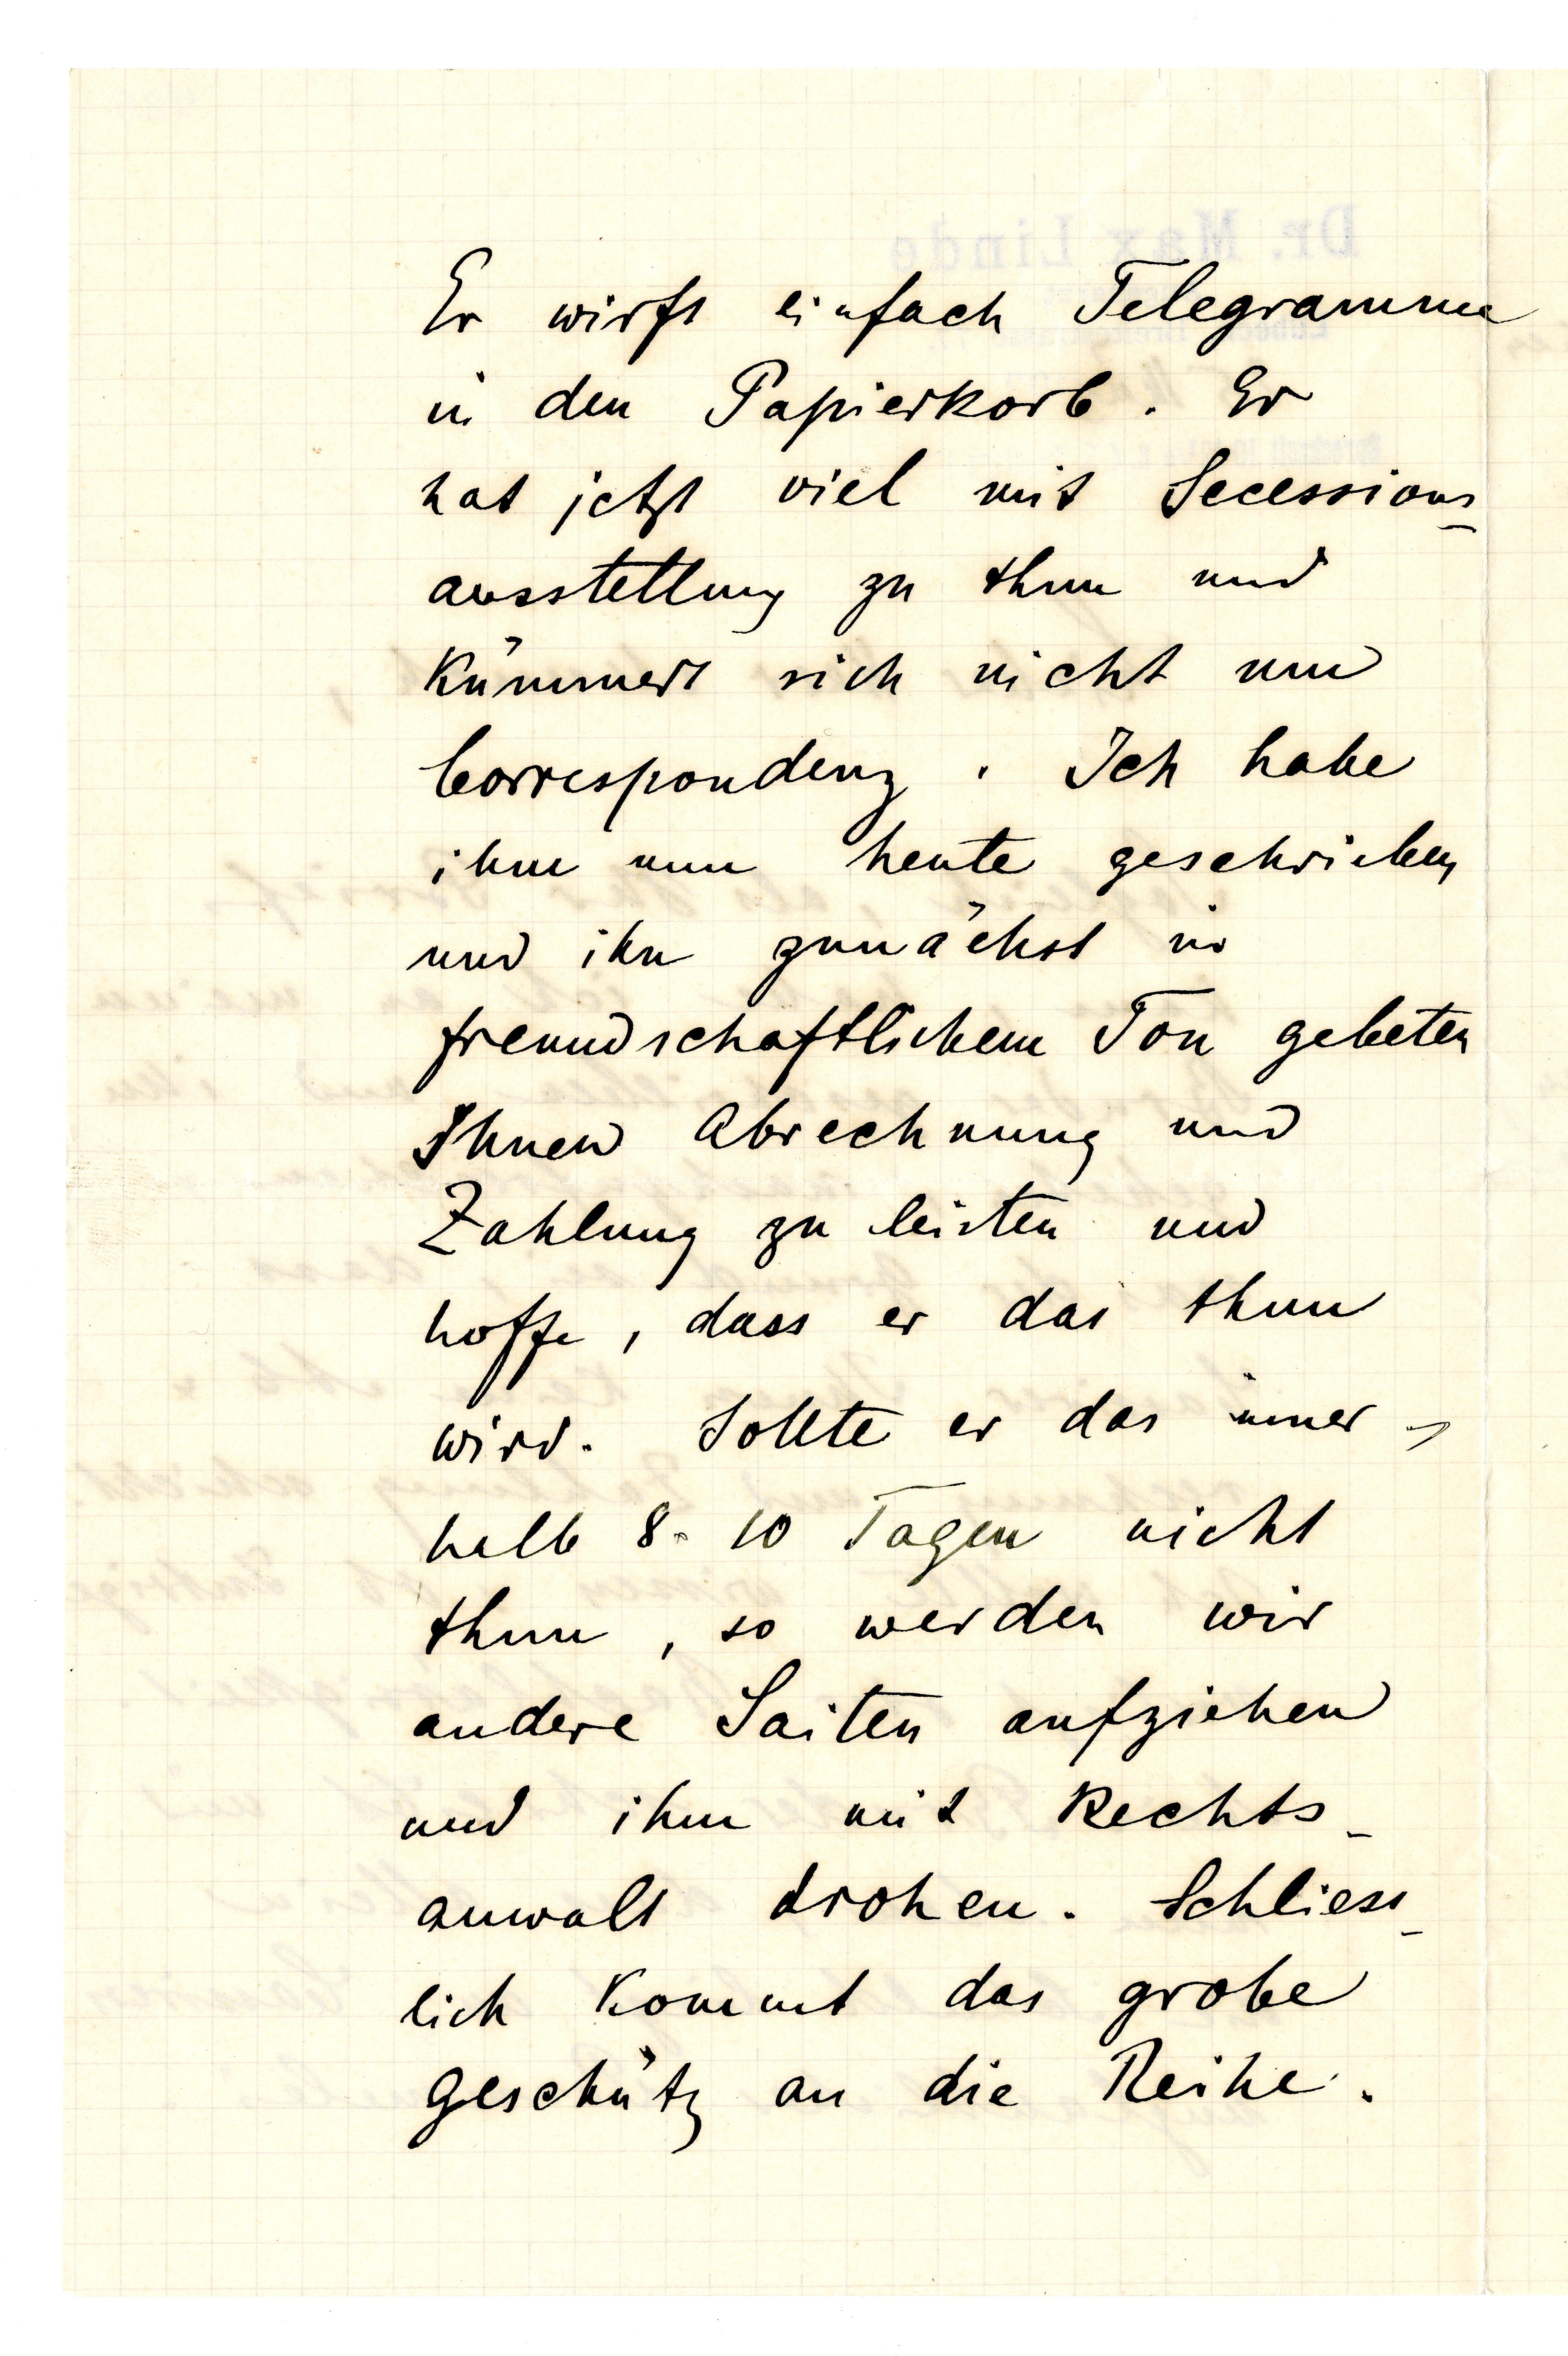 Er wirft einfach Telegramme
in den Papierkorb. Er
hat jetzt viel mit Secessions-
ausstellung zu thun und
kümmert sich nicht um
Correspondenz. Ich habe
ihm nun heute geschrieben
und ihn zunächst in
freundschaftlichem Ton gebeten
Ihnen Abrechnung und
Zahlung zu leisten und
hoffe, dass er das thun
wird. Sollte er das inner-
halb 8-10 Tagen nicht
thun, so werden wir
andere Saiten aufziehen
und ihm mit Rechts-
anwalt drohen. Schliess-
lich kommt das grobe
Geschütz an die Reihe.